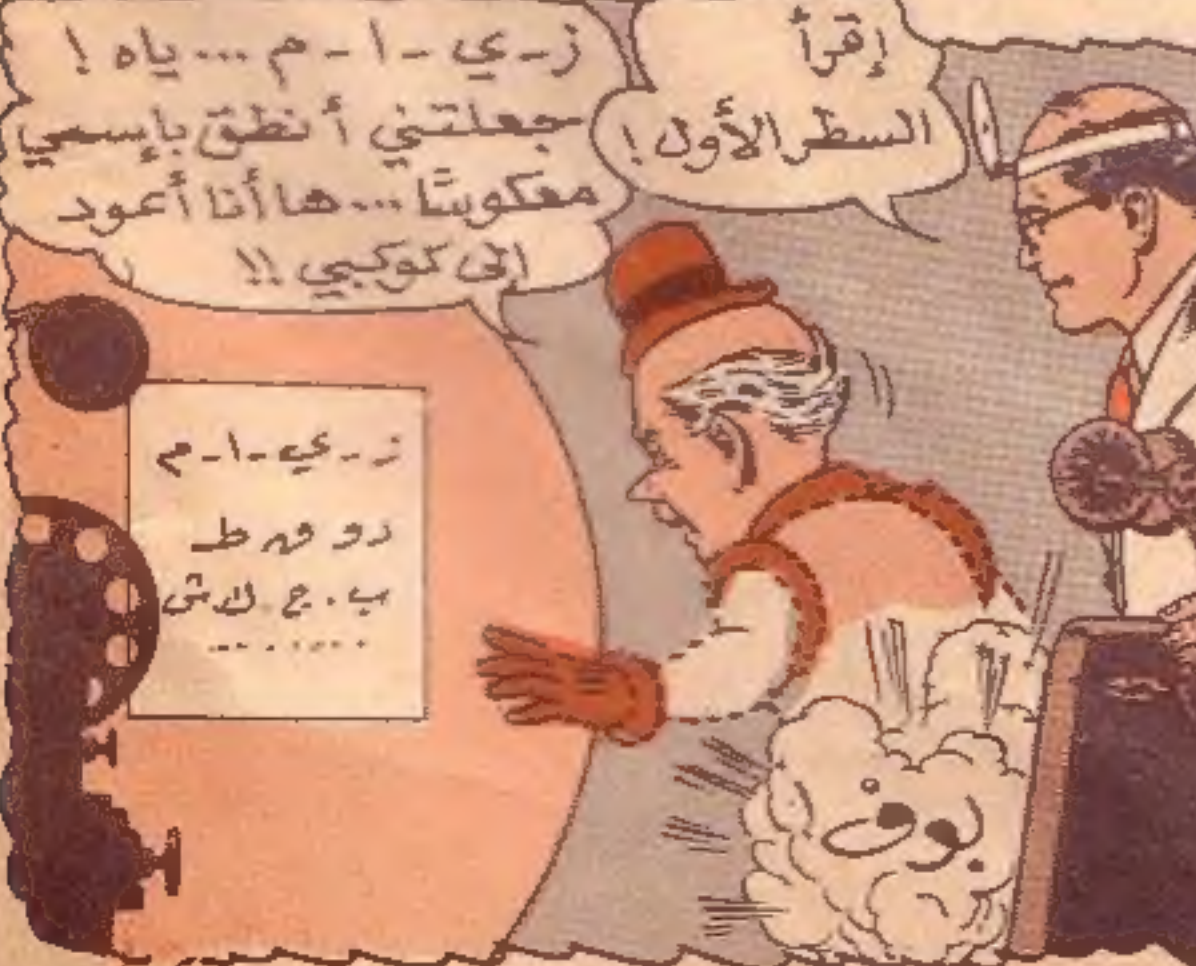 إقرأ
السطر الأول !
ز-ي-ا-م ... ياه !
جعلتني أنطق بإسمي
معكوسًا ... ها أنا أعود
إلى كوكبي !!
ز-ي-ا-م
ب . ج . ك ش